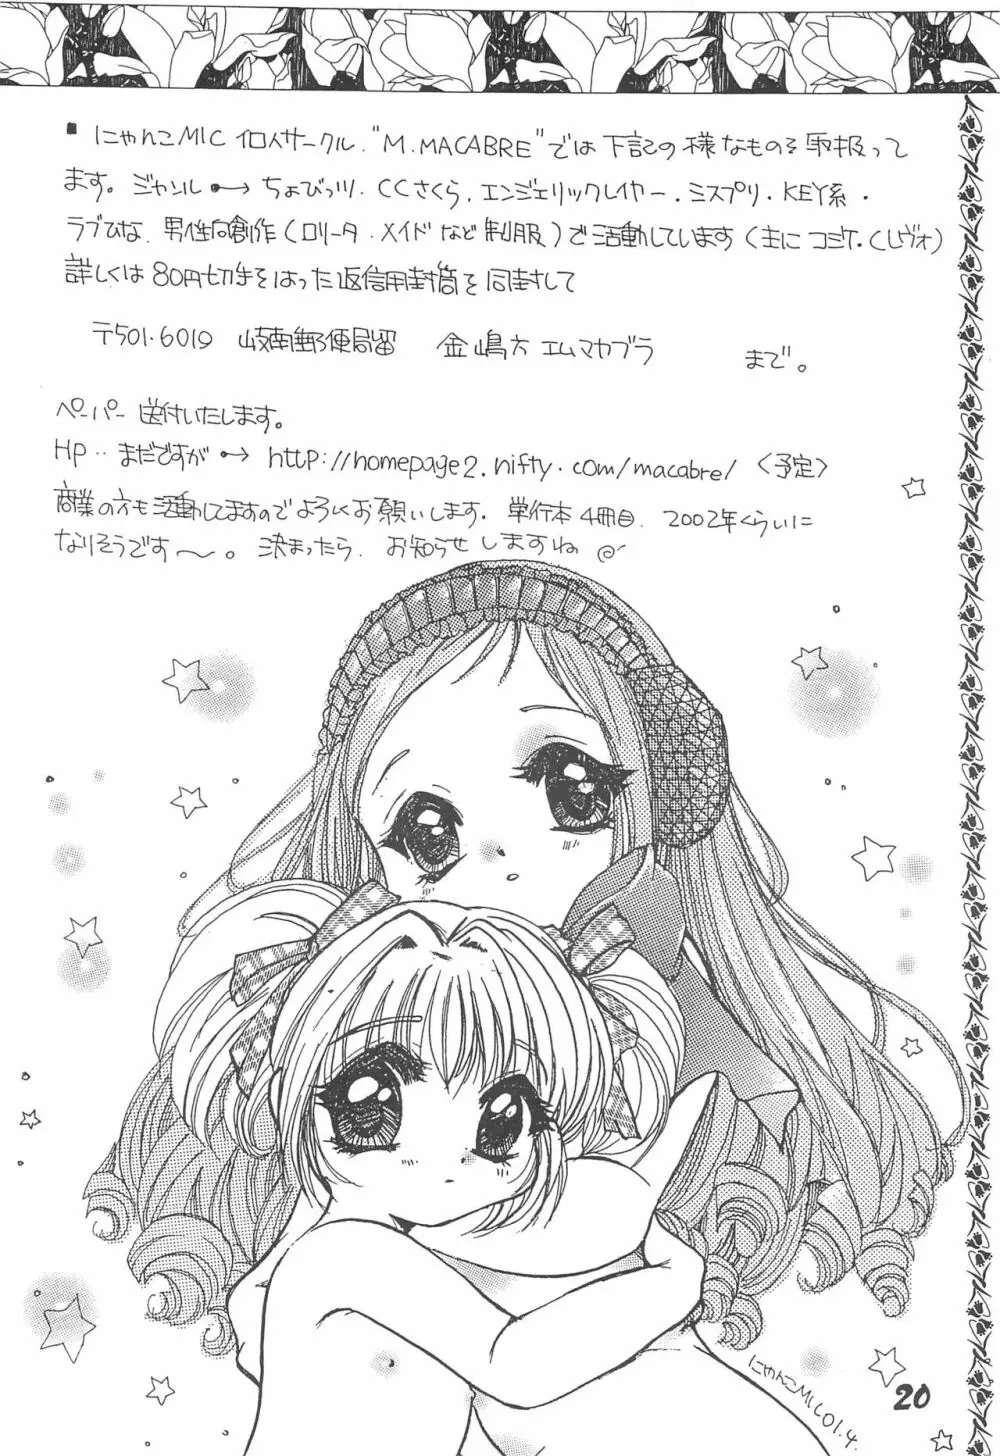 ■ にゃんこMIC 個人サークル "M.MACABRE" では 下記の様なものを取扱って
ます。ジャンル → ちょびっツ・CCさくら・エンジェリックレイヤー・ミスプリ・KEY系・
ラブひな、男性向創作(ロリータ・メイドなど制服)で活動しています(主にコミケ・Cレヴォ)
詳しくは80円切手をはった返信用封筒を同封して
〒501-6019 岐南郵便局留 金嶋方 エムマカブラ まで。
ペーパー送付いたします。
HP‥まだですが → http://homepage2.nifty.com/macabre/ <予定>
商業の方も活動してますのでよろしくお願いします。単行本4冊目、2002年くらいに
なりそうです〜。決まったら、お知らせしますね
にゃんこMIC 01.4.
20